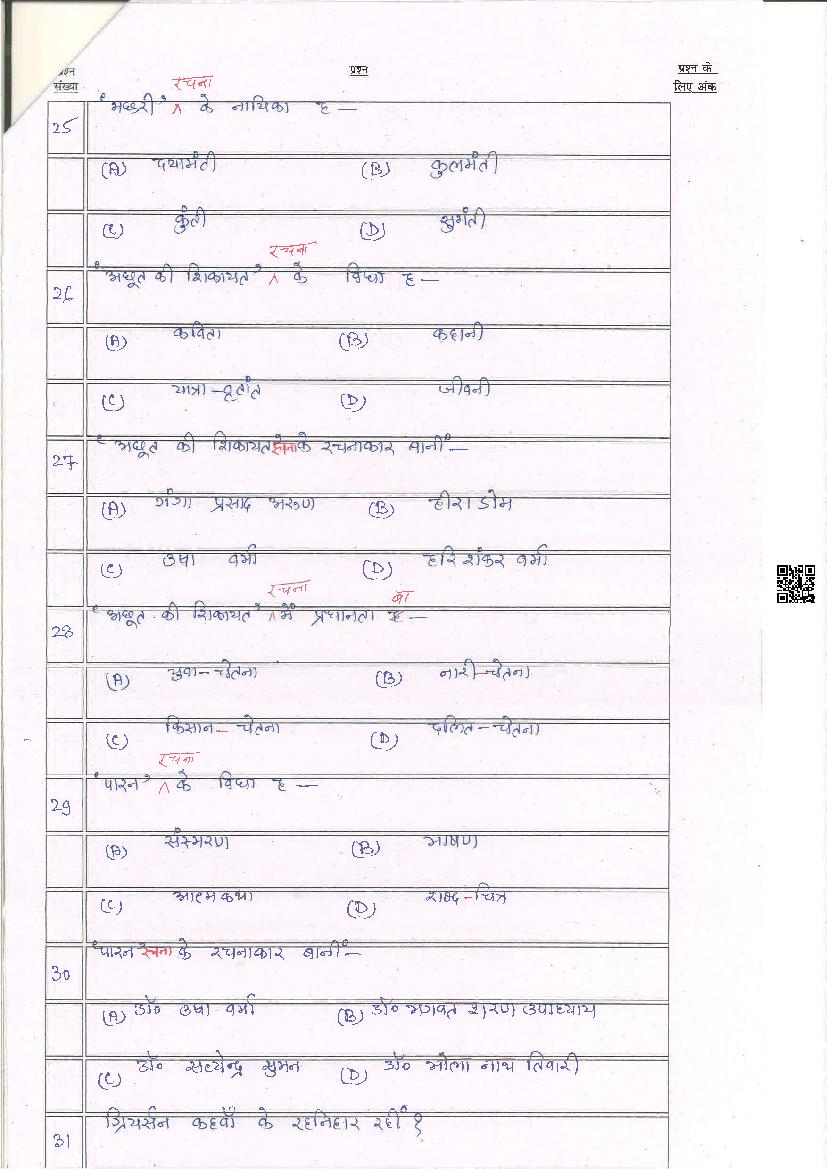 प्रश्न संख्या प्रश्न प्रश्न के लिए अंक
25 'मछरी' रचना के नायिका ह —
(A) दयामंती (B) कुलमंती
(C) कुंती (D) सुगंती
26 'अछूत की शिकायत' रचना के विधा ह —
(A) कविता (B) कहानी
(C) यात्रा-वृतांत (D) जीवनी
27 'अछूत की शिकायत रचना के रचनाकार बानीं —
(A) गंगा प्रसाद अरुण (B) हीरा डोम
(C) उषा वर्मा (D) हरि शंकर वर्मा
28 'अछूत की शिकायत' रचना में प्रधानता बा —
(A) युवा-चेतना (B) नारी-चेतना
(C) किसान-चेतना (D) दलित-चेतना
29 'पारन' रचना के विधा ह —
(A) संस्मरण (B) भाषण
(C) आत्मकथा (D) शब्द-चित्र
30 'पारन रचना के रचनाकार बानीं —
(A) डॉ॰ उषा वर्मा (B) डॉ॰ भगवत शरण उपाध्याय
(C) डॉ॰ सत्येन्द्र सुमन (D) डॉ॰ भोला नाथ तिवारी
31 ग्रियर्सन कहवाँ के रहनिहार रहीं ?